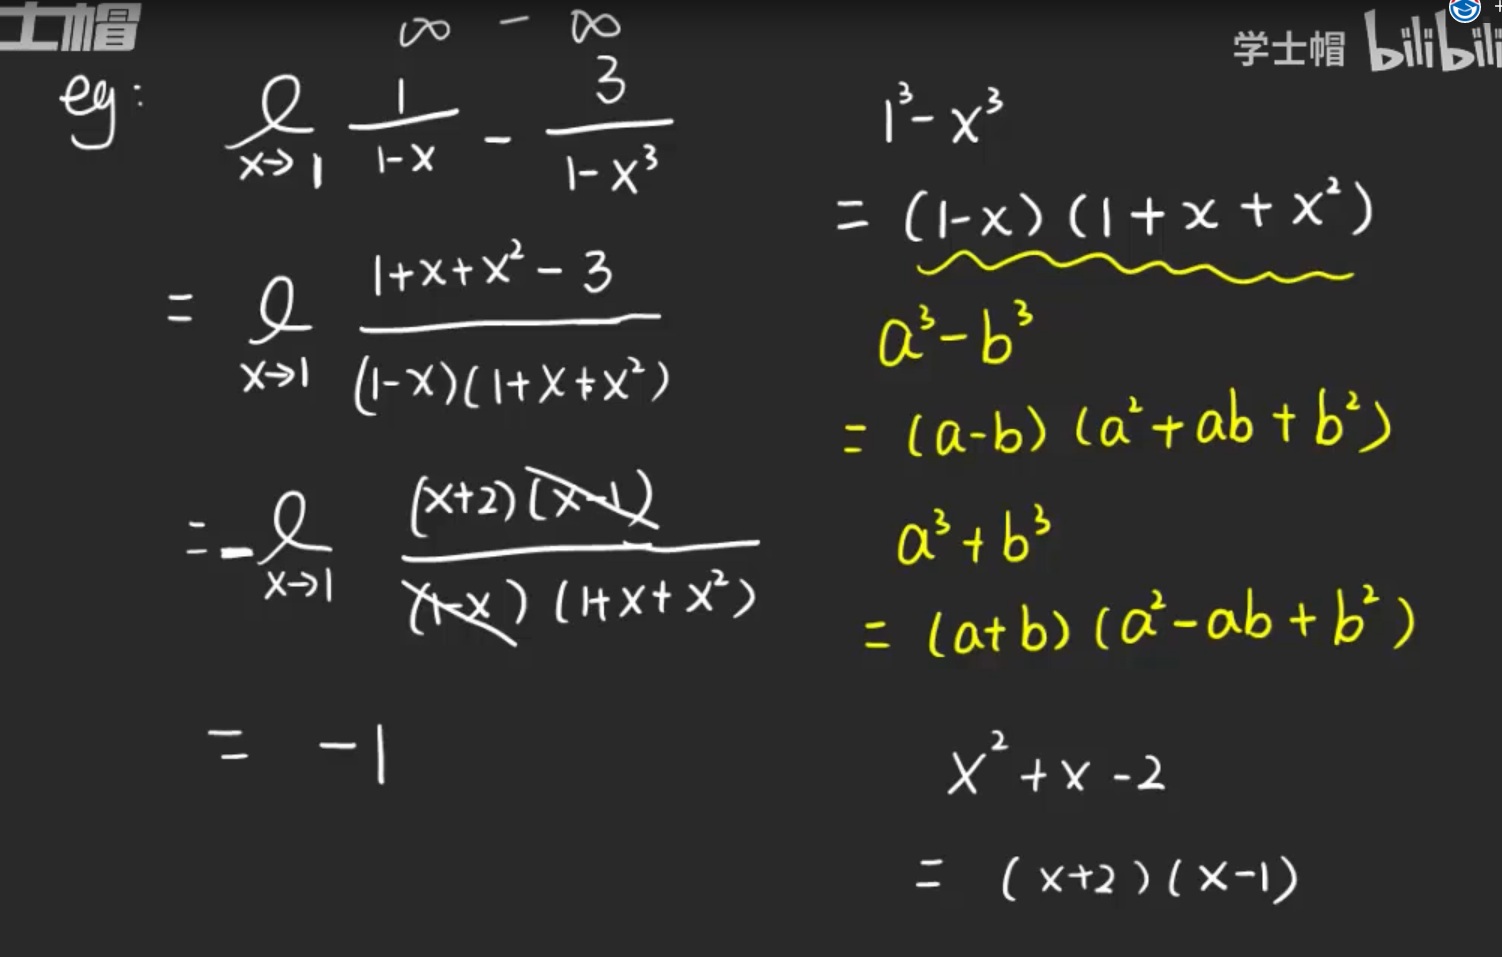 士帽
学士帽 bilibili
∞ - ∞
eg: l x→1 1/(1-x) - 3/(1-x³)
= l x→1 (1+x+x²-3)/((1-x)(1+x+x²))
= -l x→1 ((x+2)(x-1))/((1-x)(1+x+x²))
= -1
1³-x³
= (1-x)(1+x+x²)
a³-b³
= (a-b)(a²+ab+b²)
a³+b³
= (a+b)(a²-ab+b²)
x²+x-2
= (x+2)(x-1)